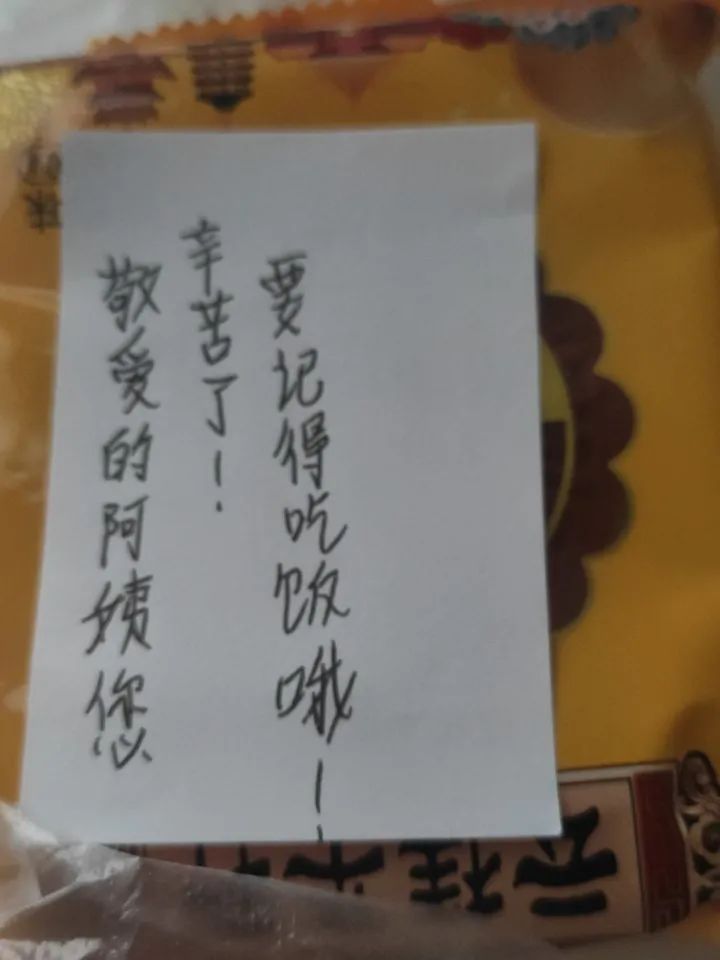 敬爱的阿姨您
辛苦了！
要记得吃饭哦！